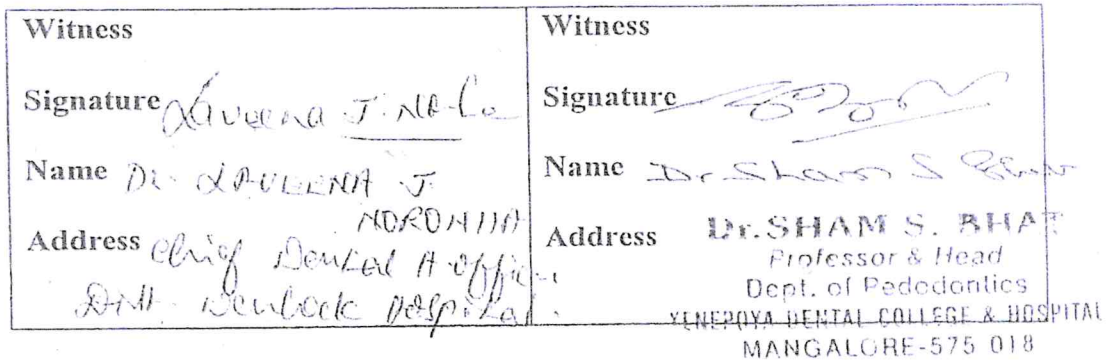 Witness
Signature Laveena J. No
Name Dr. LAVEENA J.
NORONHA
Address Chief Dental H. Officer
Dist. Wenlock Hospital.
Witness
Signature
Name Dr. Sham S Bhat
Address Dr. SHAM S. BHAT
Professor & Head
Dept. of Pedodontics
YENEPOYA DENTAL COLLEGE & HOSPITAL
MANGALORE-575 018